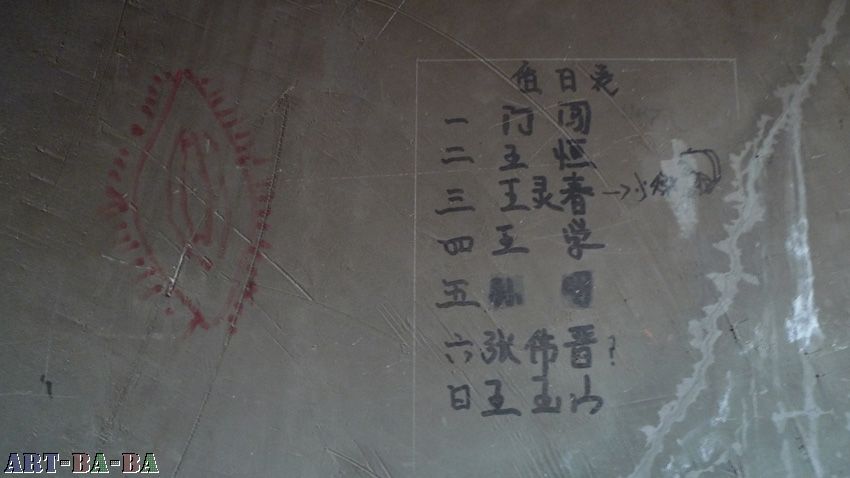 值日表
一 门闯
二 王恒
三 王灵春→小
四 王学
五 孙 明
六 张伟晋?
日 王玉山
ART-BA-BA